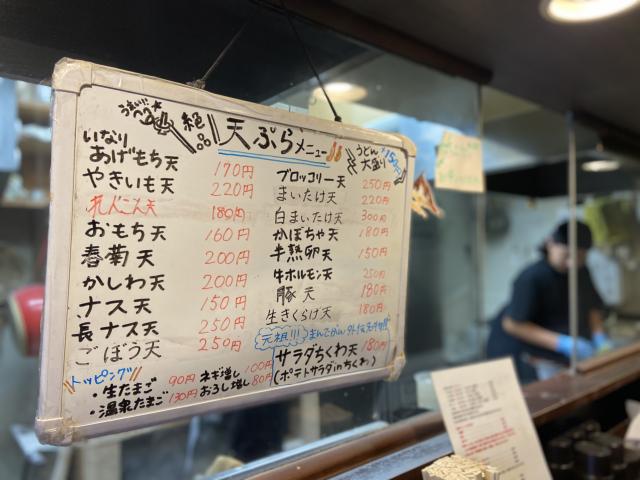 うまい!!
絶品 天ぷらメニュー
うどん大盛り 150円
いなりあげもち天 170円
やきいも天 220円
れんこん天 180円
おもち天 160円
春菊天 200円
かしわ天 200円
ナス天 150円
長ナス天 250円
ごぼう天 250円
ブロッコリー天 250円
まいたけ天 220円
白まいたけ天 300円
かぼちゃ天 180円
半熟卵天 150円
牛ホルモン天 250円
豚天 180円
生きくらげ天 180円
元祖!!!
サラダちくわ天 180円
(ポテトサラダinちくわ)
トッピング
・生たまご 90円 ネギ増し 100円
・温泉たまご 130円 おろし増し 80円